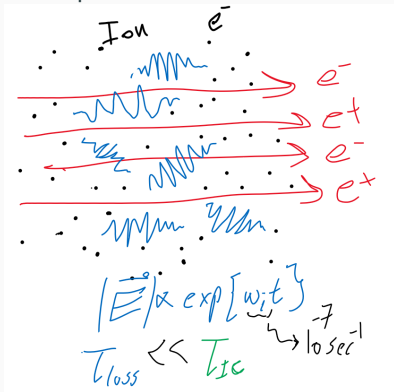 Ion e⁻
e⁻
e⁺
e⁻
e⁺
|E⃗| ∝ exp{ωᵢt}
→ 10⁻⁷ sec⁻¹
τ_loss << τ_IC